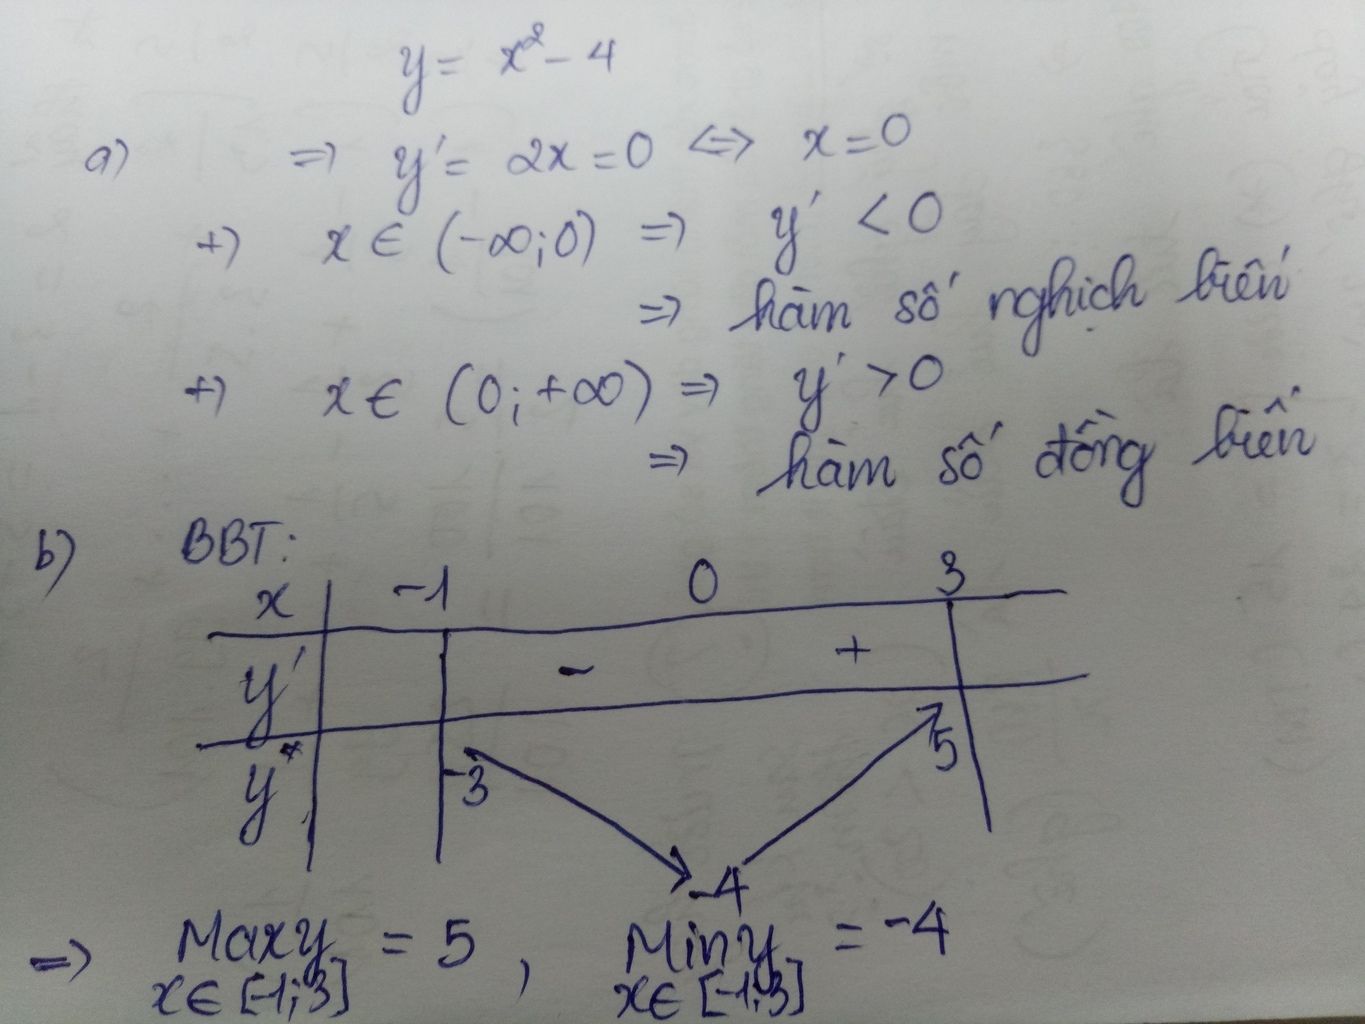 y = x² - 4
a) => y' = 2x = 0 <=> x = 0
+) x ∈ (-∞; 0) => y' < 0
=> hàm số nghịch biến
+) x ∈ (0; +∞) => y' > 0
=> hàm số đồng biến
b) BBT:
x -1 0 3
y' - +
y -3 -4 5
=> Max y = 5 , Min y = -4
x ∈ [-1; 3] x ∈ [-1; 3]